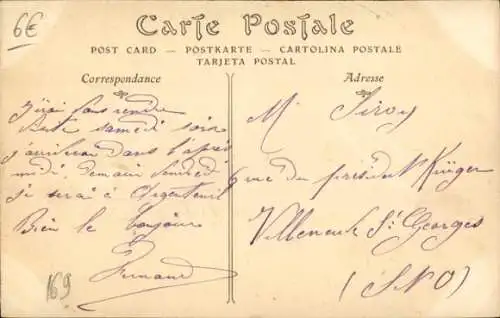 6€
Carte Postale
POST CARD — POSTKARTE — CARTOLINA POSTALE
TARJETA POSTAL
Correspondance
J'irai vous rendre
samedi soir
j'arriverai dans l'après
midi demain
je serai à Argenteuil
Bien le bonjour
Fernand
169
Adresse
M. Siroy
6 rue du président Krüger
Villeneuve St Georges
(S & O)